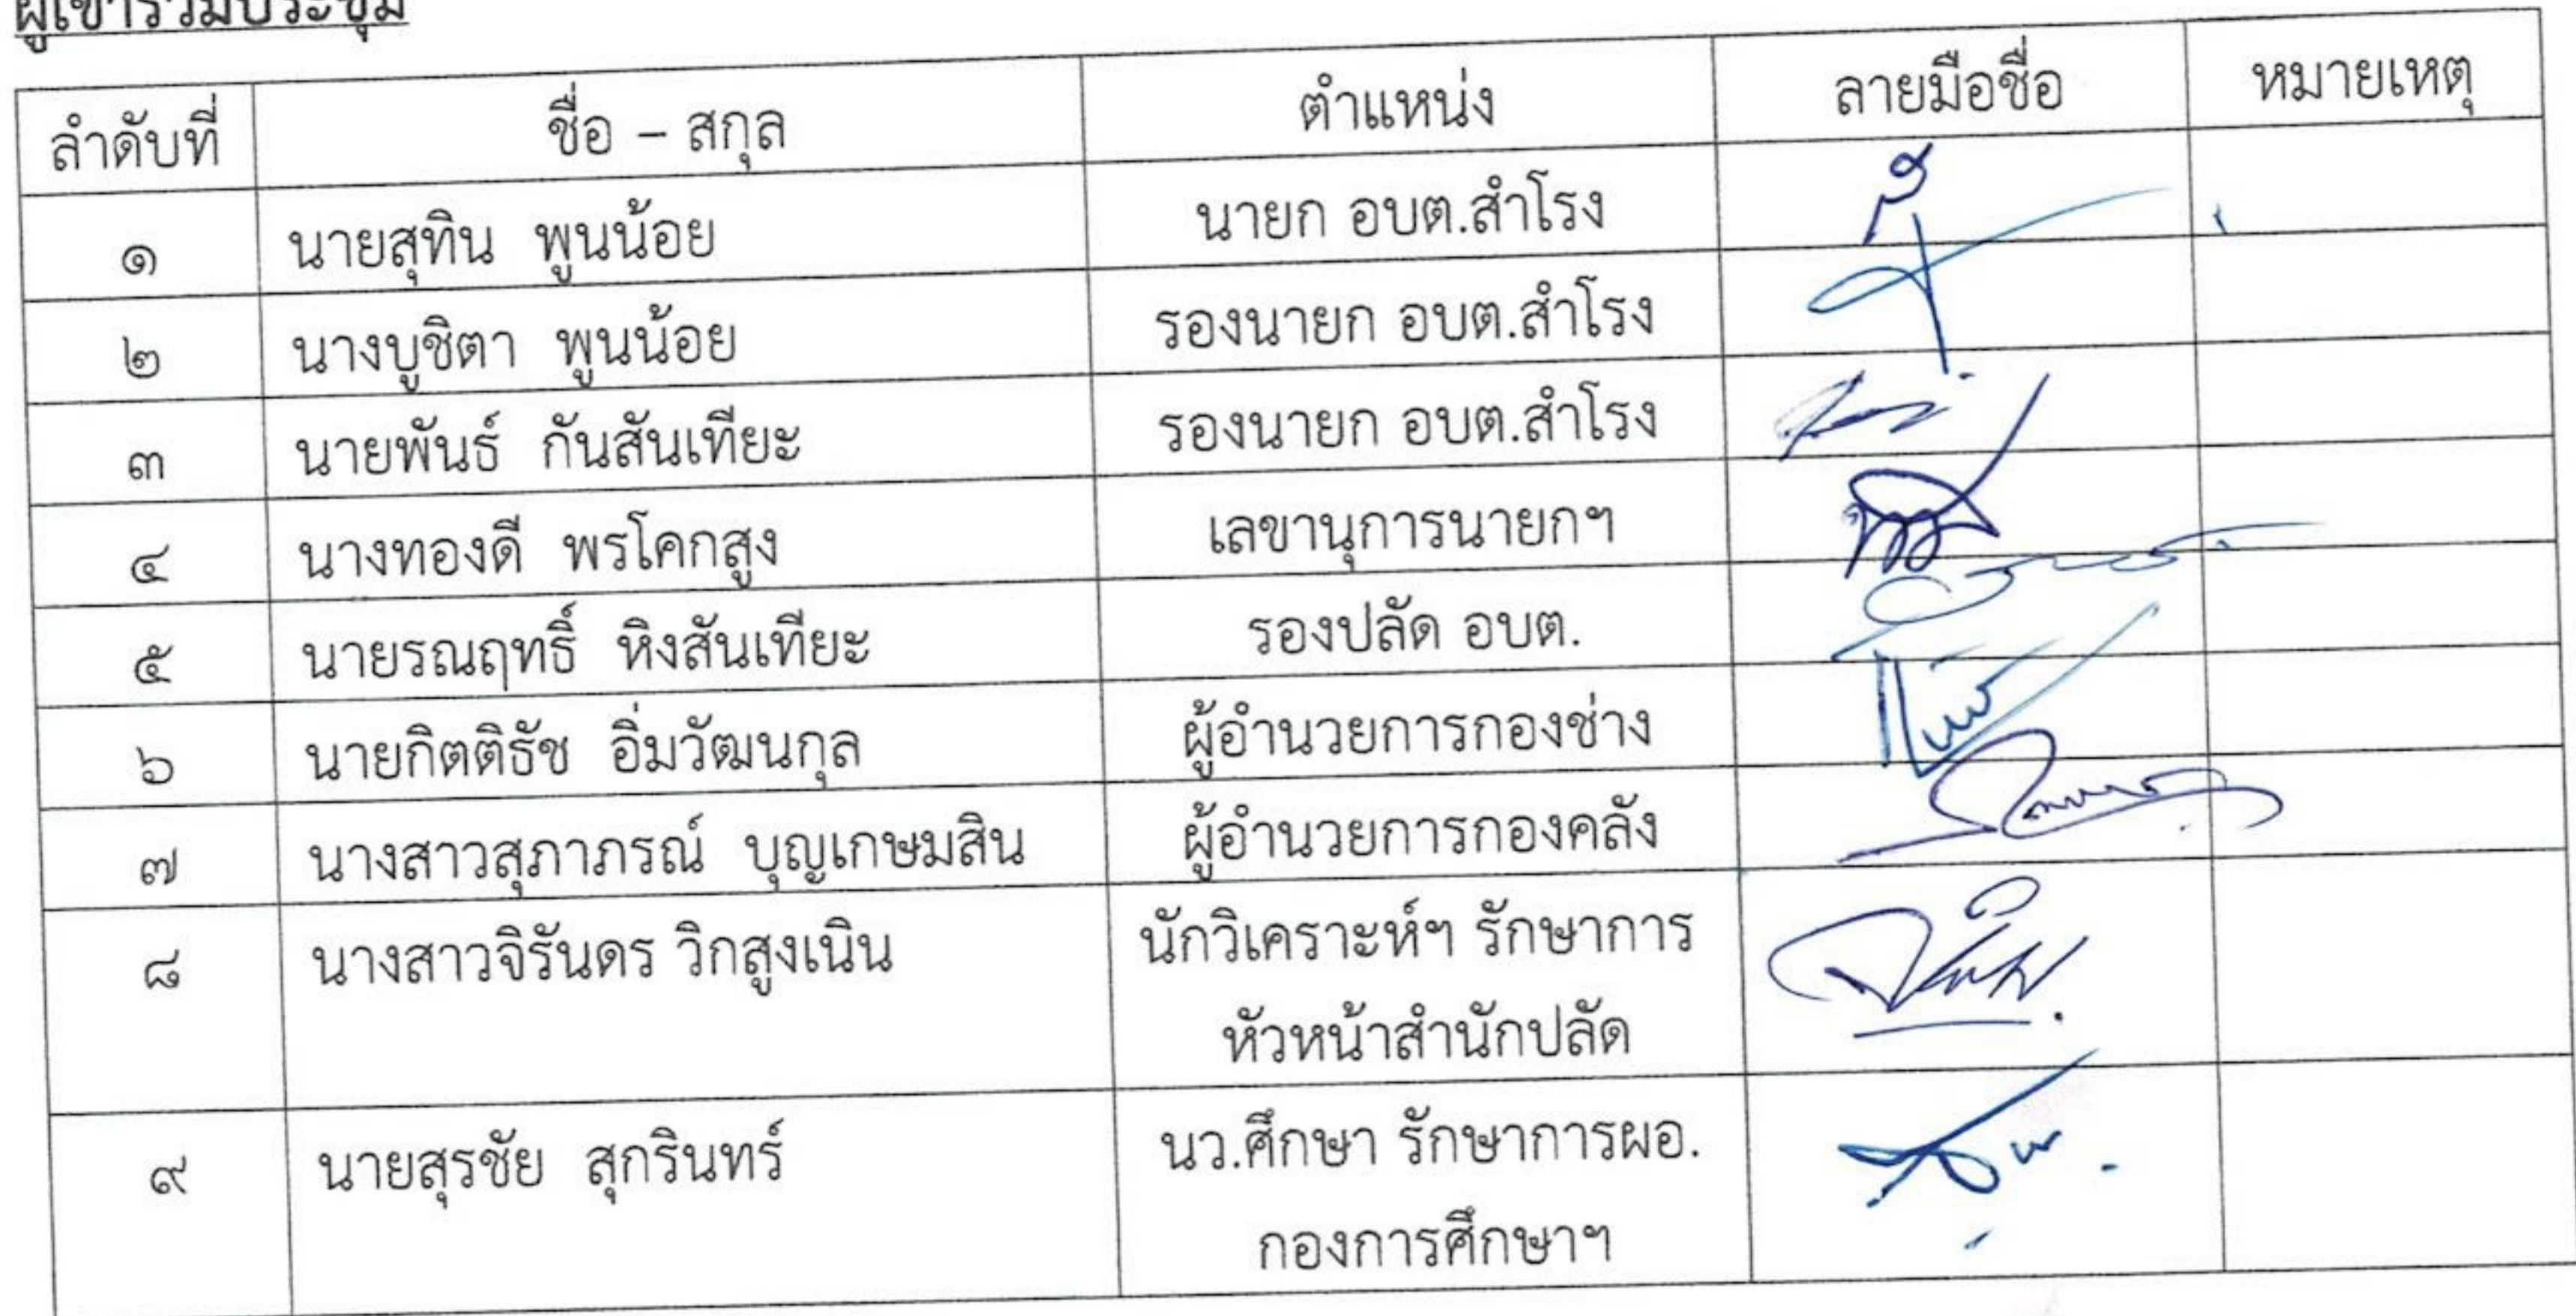 ผู้เข้าร่วมประชุม
ลำดับที่ ชื่อ – สกุล ตำแหน่ง ลายมือชื่อ หมายเหตุ
๑ นายสุทิน พูนน้อย นายก อบต.สำโรง
๒ นางบูชิตา พูนน้อย รองนายก อบต.สำโรง
๓ นายพันธ์ กันสันเทียะ รองนายก อบต.สำโรง
๔ นางทองดี พรโคกสูง เลขานุการนายกฯ
๕ นายรณฤทธิ์ หิงสันเทียะ รองปลัด อบต.
๖ นายกิตติธัช อิ่มวัฒนกุล ผู้อำนวยการกองช่าง
๗ นางสาวสุภาภรณ์ บุญเกษมสิน ผู้อำนวยการกองคลัง
๘ นางสาวจิรันดร วิกสูงเนิน นักวิเคราะห์ฯ รักษาการ
หัวหน้าสำนักปลัด
๙ นายสุรชัย สุกรินทร์ นว.ศึกษา รักษาการผอ.
กองการศึกษาฯ